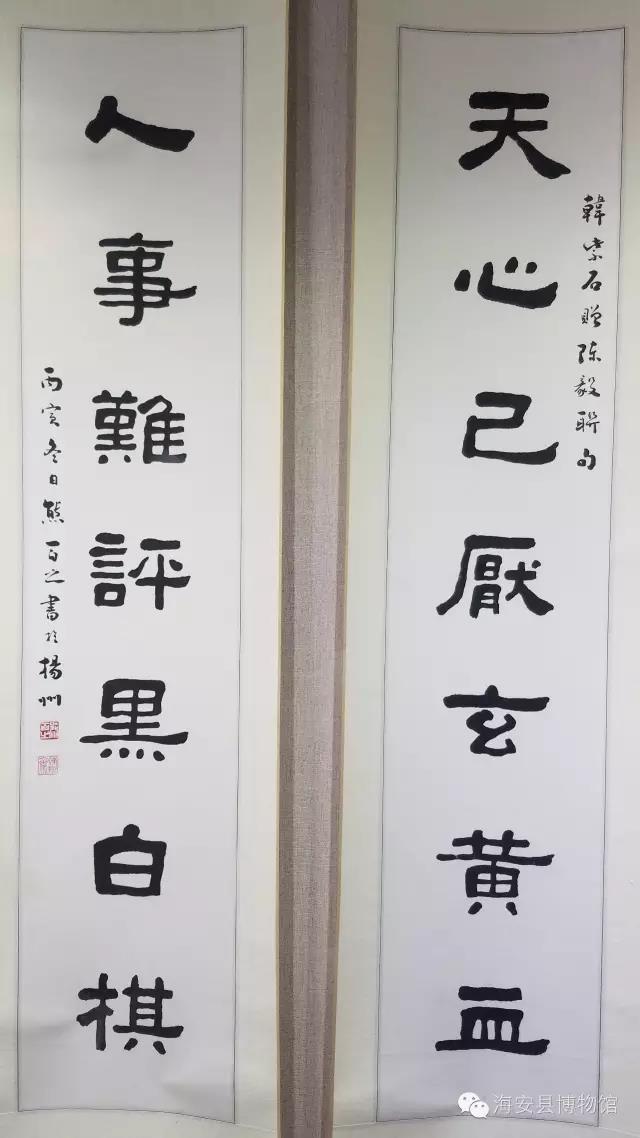 天心已厭玄黃血
韓紫石贈陳毅聯句
人事難評黑白棋
丙寅冬日熊百之書於揚州
海安县博物馆